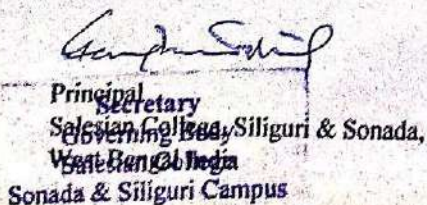 Principal
Secretary
Salesian College, Siliguri & Sonada,
Governing Body
West Bengal India
Salesian College
Sonada & Siliguri Campus